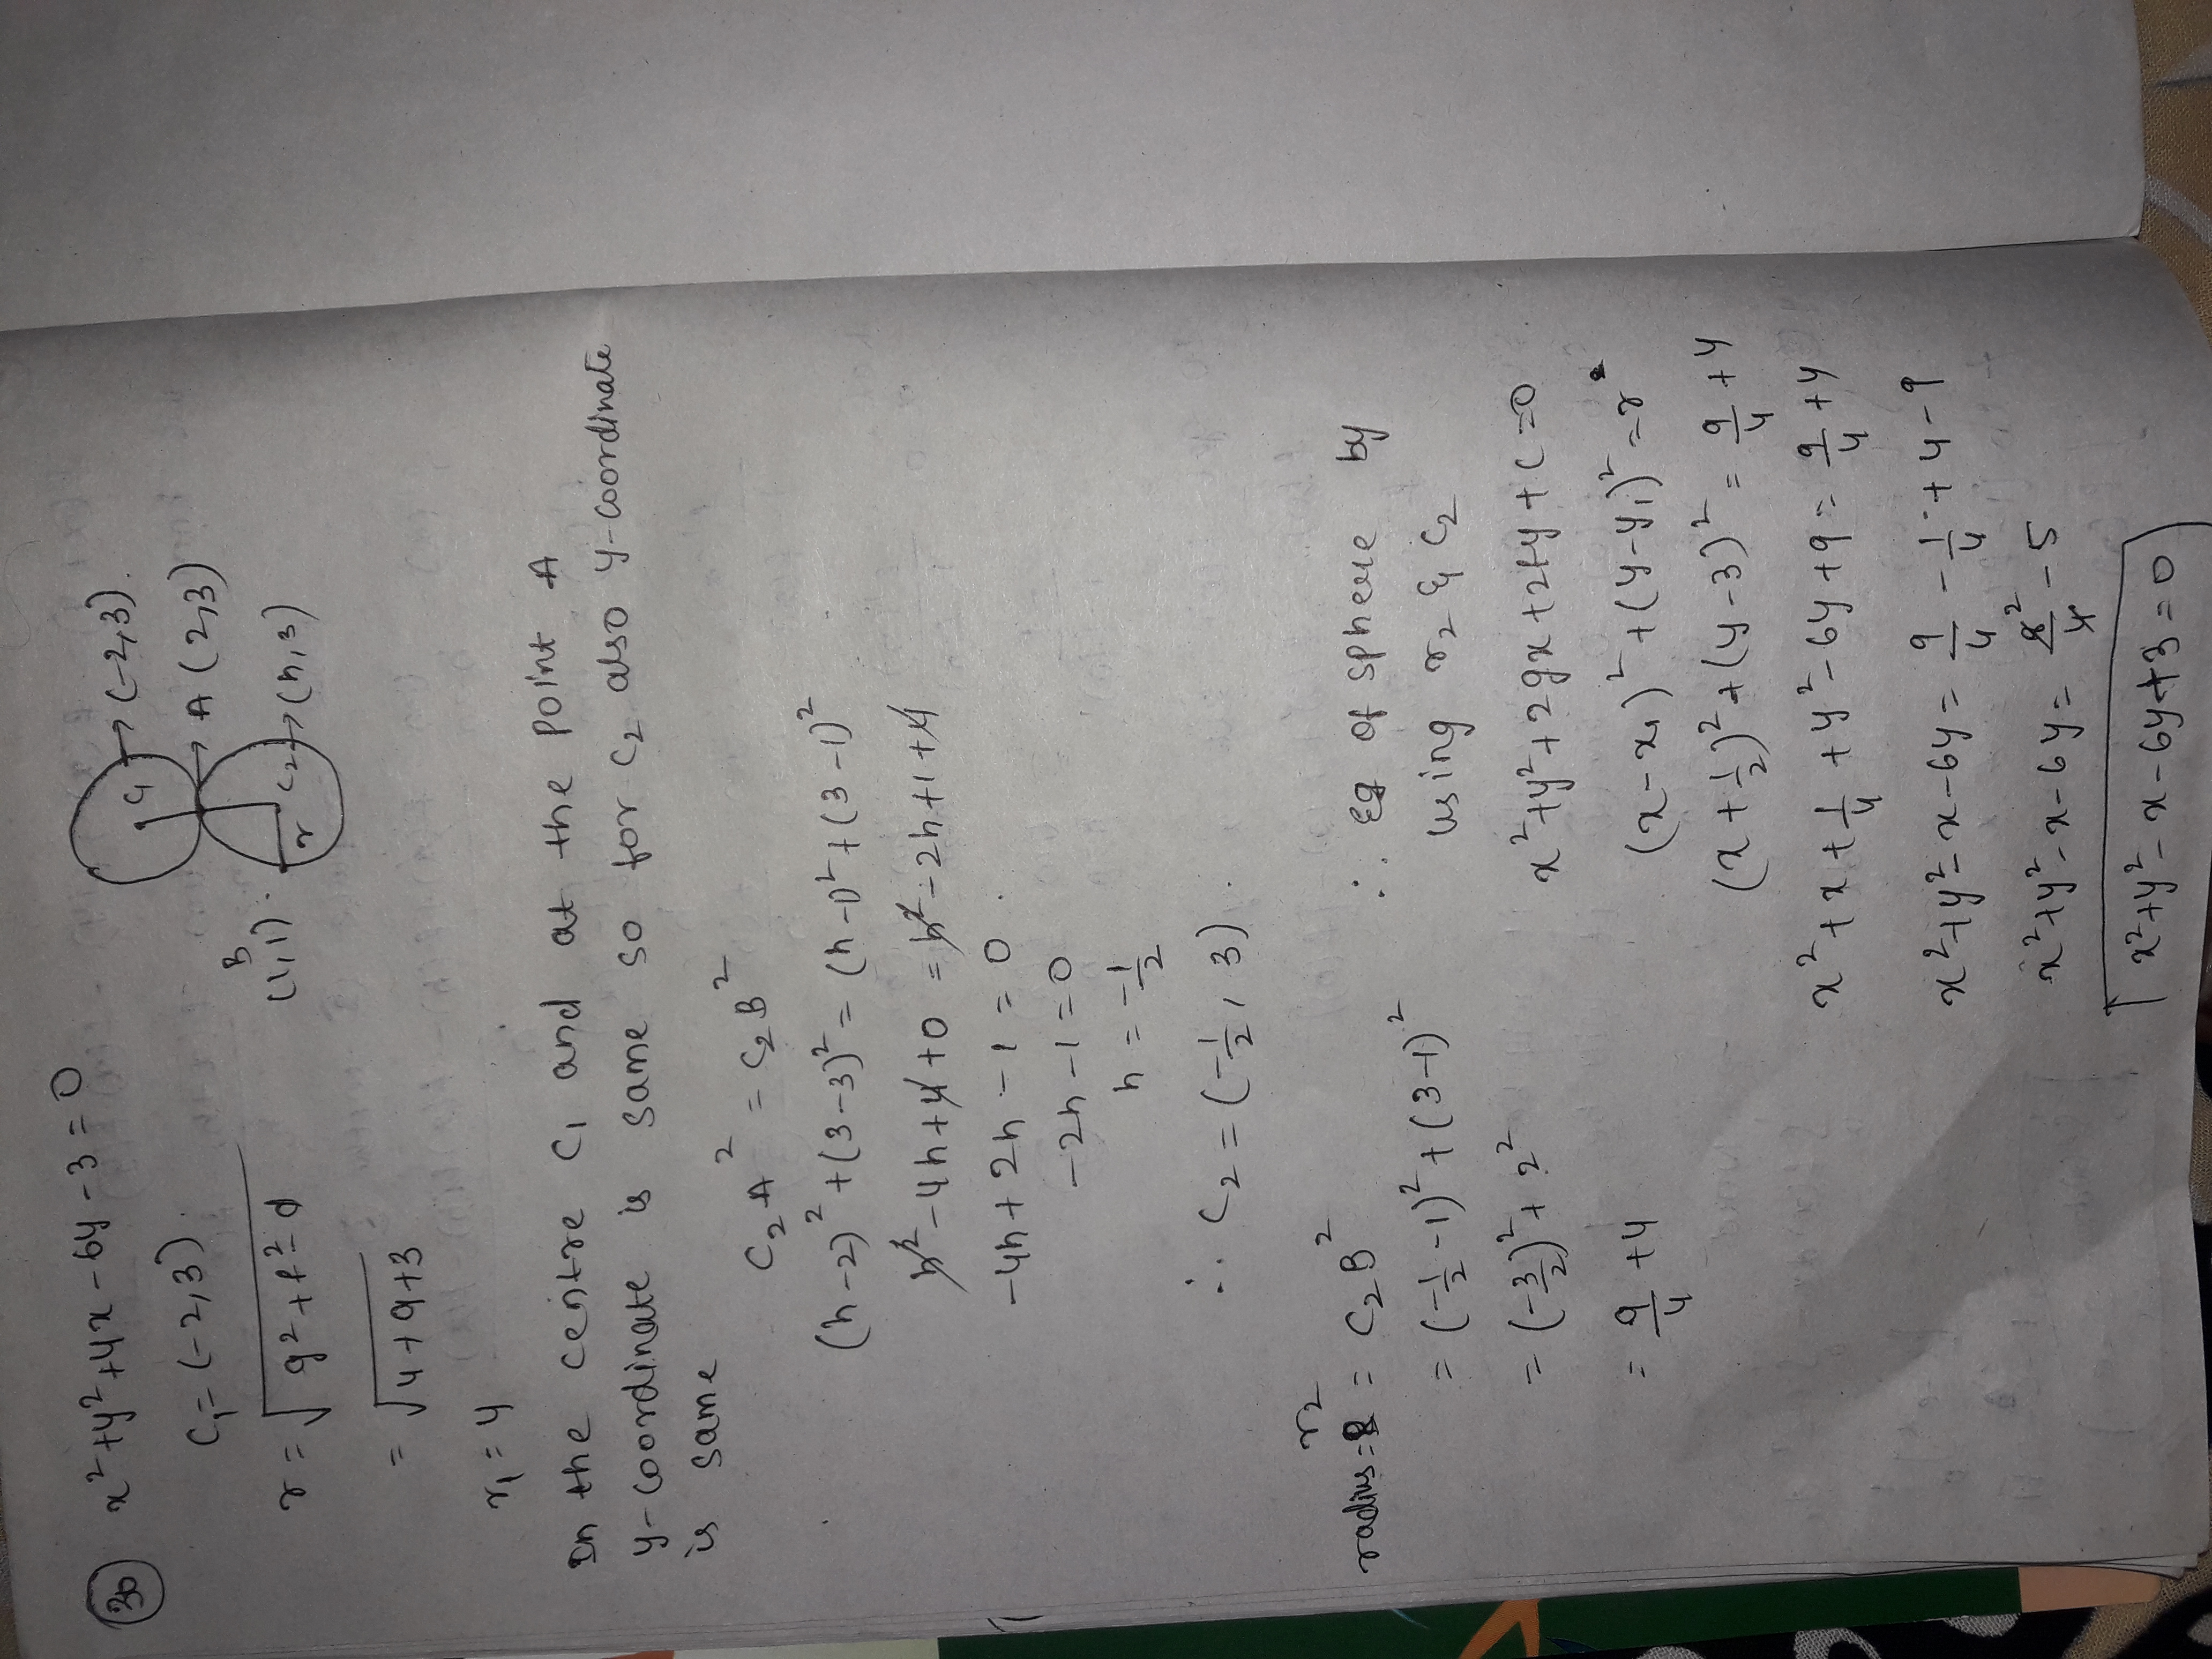 30 x²+y²+4x-6y-3=0
C₁=(-2,3)
r=√g²+f²-d
=√4+9+3
r₁=4
C₁ → (-2,3).
→ A (2,3)
B
(1,1).
r C₂ → (h,3)
In the centre C₁ and at the point A
y-coordinate is same so for C₂ also y-coordinate
is same
C₂A² = C₂B²
(h-2)²+(3-3)² = (h-1)²+(3-1)²
h²-4h+4+0 = h²-2h+1+4
-4h+2h-1=0.
-2h-1=0
h=-1/2
∴ C₂=(-1/2, 3).
radius = r² = C₂B²
= (-1/2-1)²+(3-1)²
= (-3/2)²+2²
= 9/4+4
∴ Eq of sphere by
using r₂ & C₂
x²+y²+2gx+2fy+c=0
(x-x₁)²+(y-y₁)²=r²
(x+1/2)²+(y-3)² = 9/4+4
x²+x+1/4+y²-6y+9 = 9/4+4
x²+y²-x-6y = 9/4-1/4+4-9
x²+y²-x-6y = 8/4 2 -5
x²+y²-x-6y+3=0